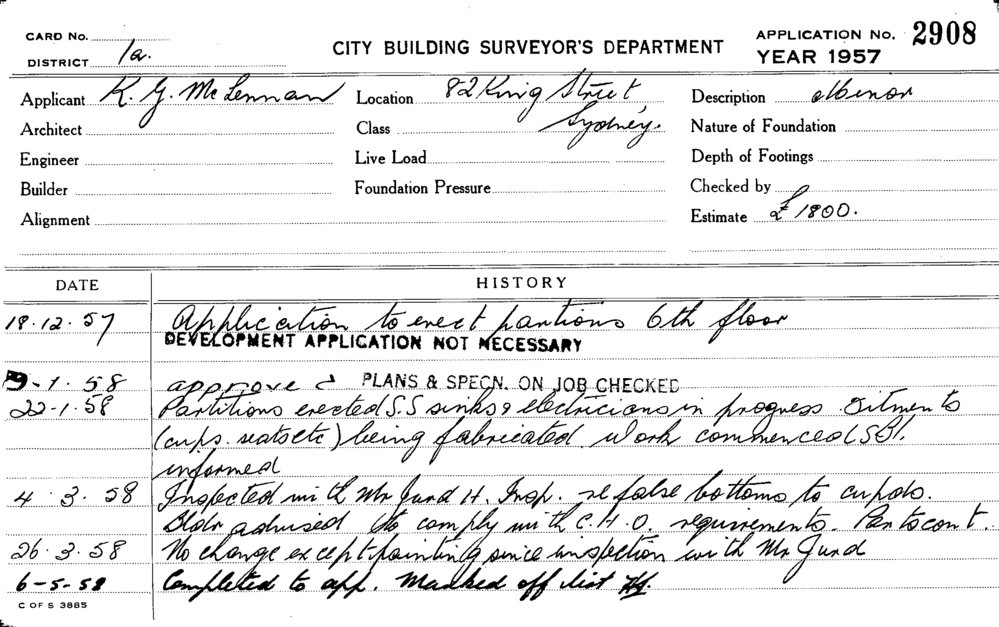 CARD No.
DISTRICT 1a.
CITY BUILDING SURVEYOR'S DEPARTMENT
APPLICATION No. 2908
YEAR 1957
Applicant K. G. McLennan
Location 82 King Street
Sydney.
Description Minor
Architect
Class
Nature of Foundation
Engineer
Live Load
Depth of Footings
Builder
Foundation Pressure
Checked by
Alignment
Estimate £1800.
DATE HISTORY
18.12.57 Application to erect partions 6th floor
DEVELOPMENT APPLICATION NOT NECESSARY
9-1.58 approved PLANS & SPECN. ON JOB CHECKED
22-1.58 Partitions erected S.S sinks & electricians in progress
(cups. seats etc) being fabricated. Work commenced
informed
4.3.58 Inspected with Mr Jurd H. Insp. re false bottoms to cupds.
Bldr advised to comply with C.H.O. requirements.
26.3.58 No change except painting since inspection with Mr Jurd
6-5-58 Completed to app. Marked off list
C OF S 3885